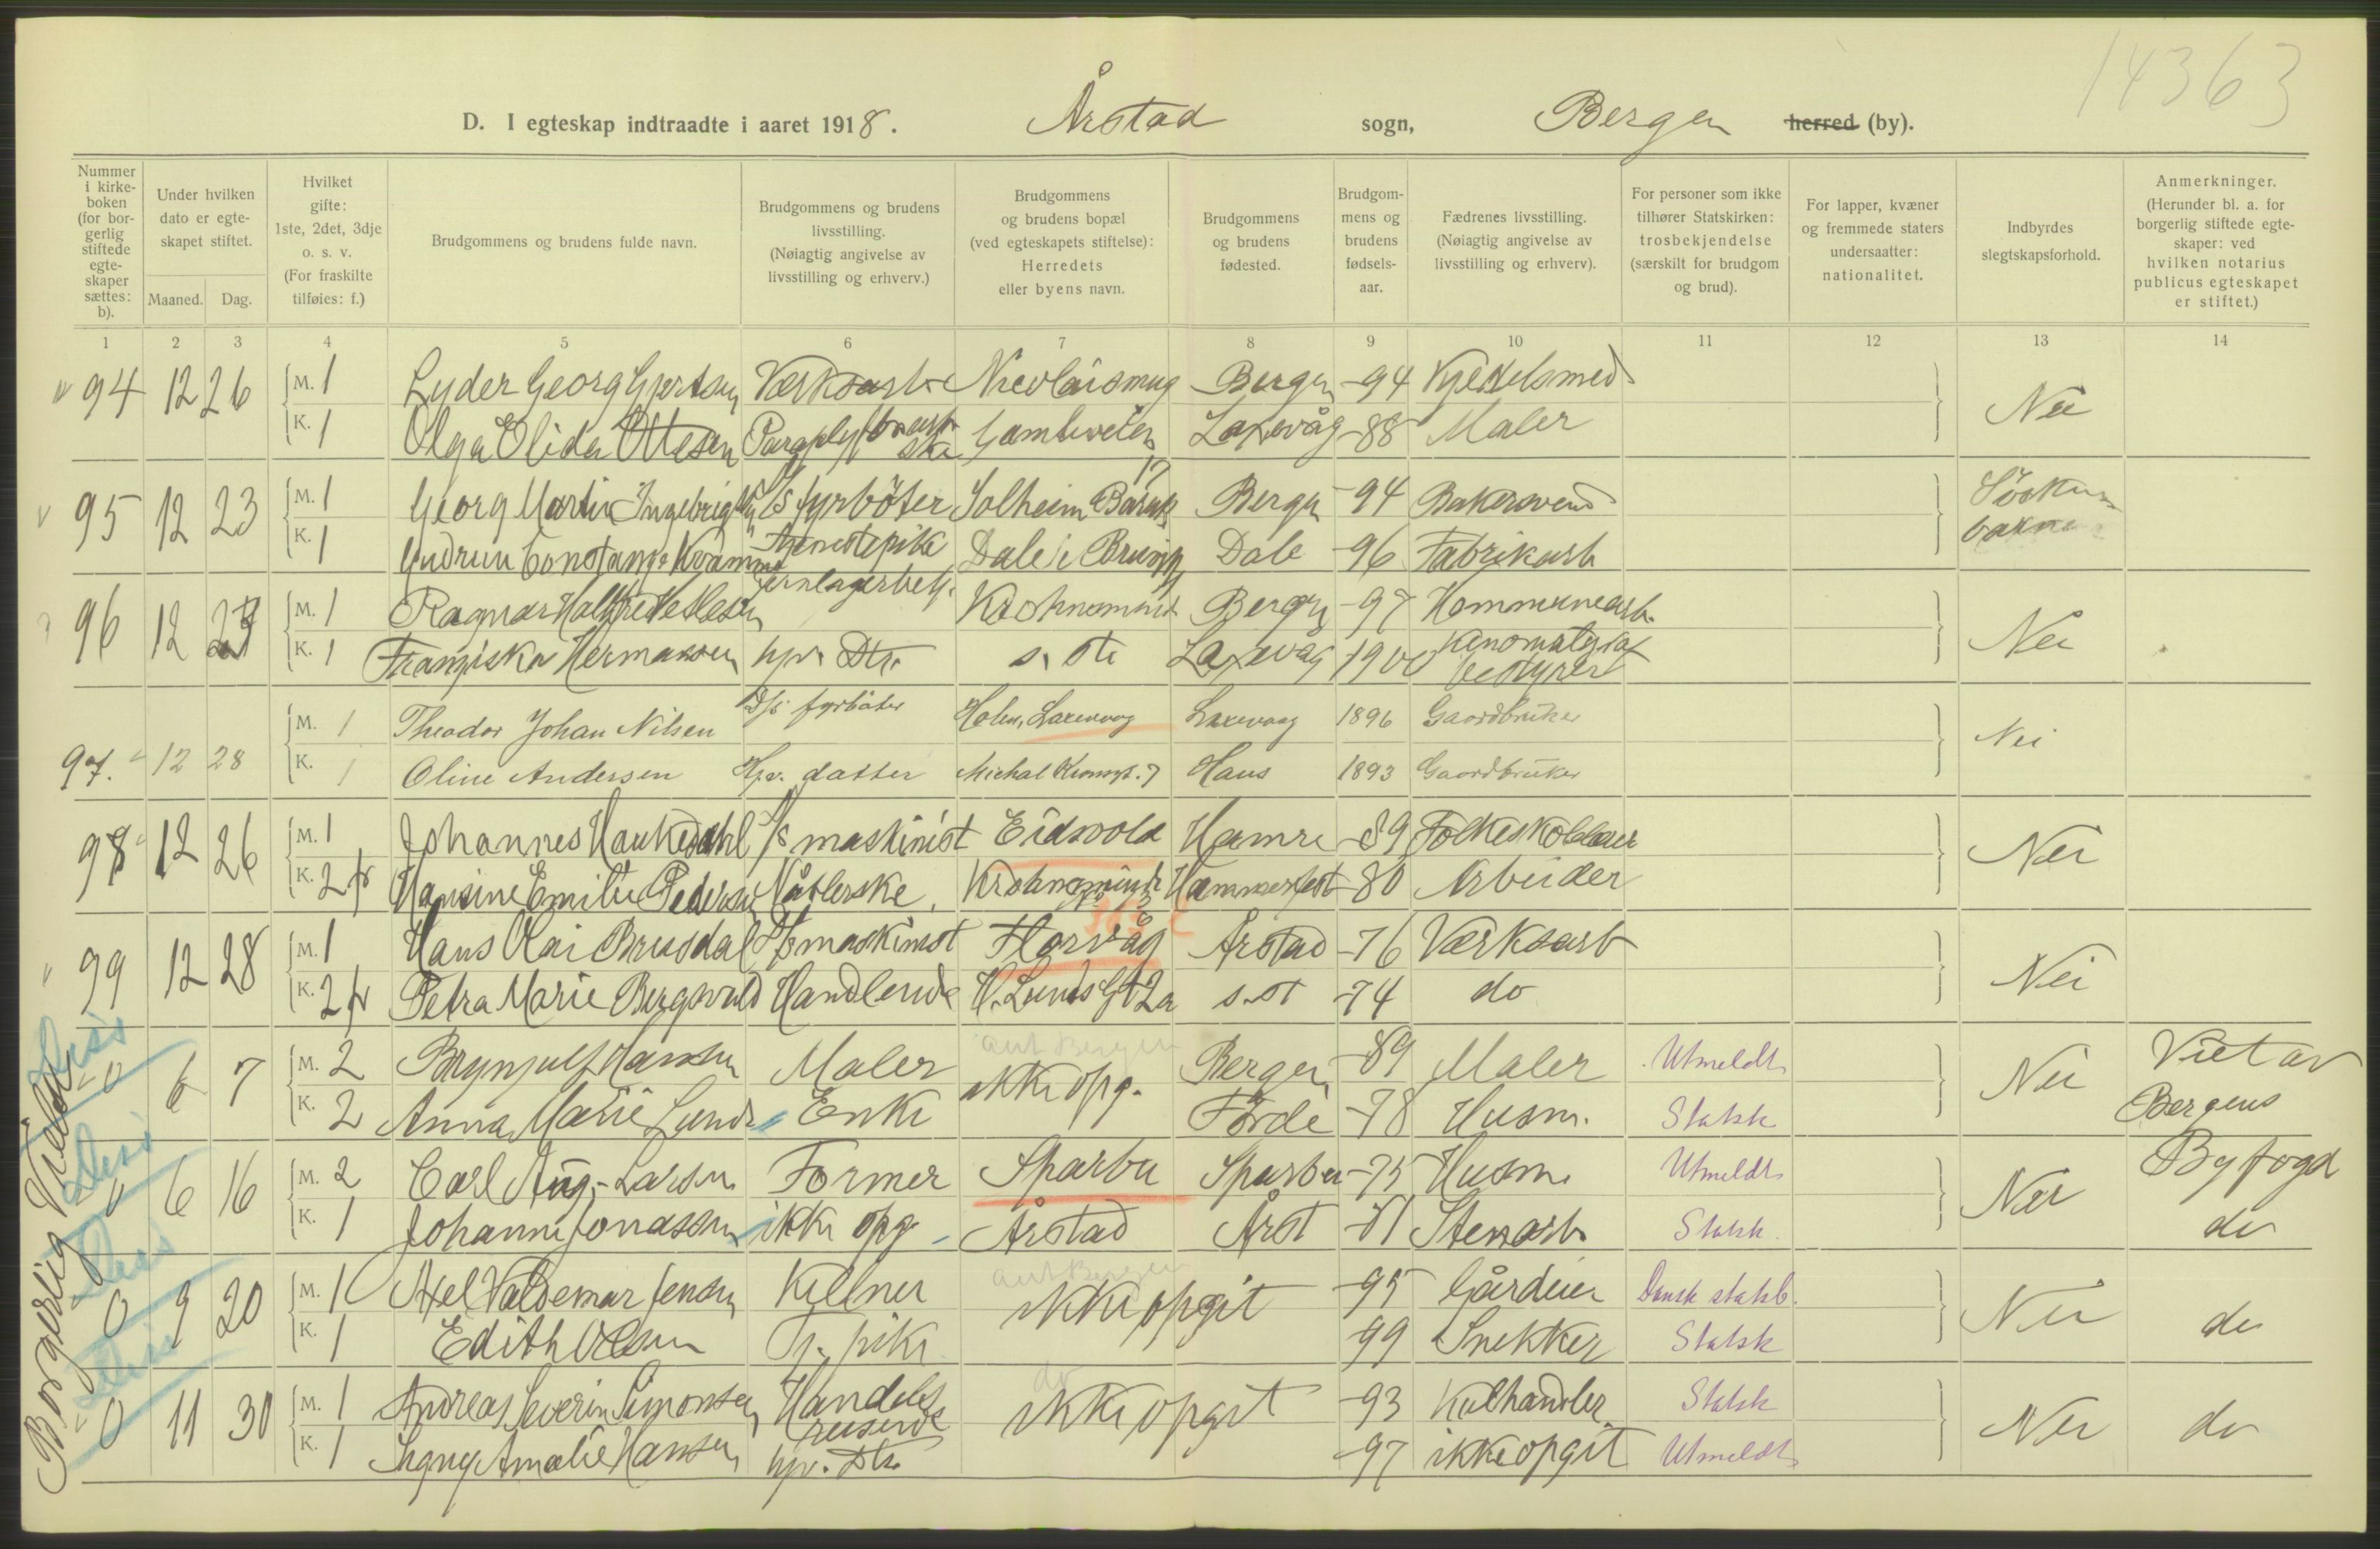 14363
D. I egteskap indtraadte i aaret 1918. Årstad sogn, Bergen herred (by).
Nummer i kirke-boken (for bor-gerlig stiftede egte-skaper sættes: b).
Under hvilken dato er egte-skapet stiftet.
Maaned. Dag.
Hvilket gifte: 1ste, 2det, 3dje o. s. v. (For fraskilte tilføies: f.)
Brudgommens og brudens fulde navn.
Brudgommens og brudens livsstilling. (Nøiagtig angivelse av livsstilling og erhverv.)
Brudgommens og brudens bopæl (ved egteskapets stiftelse): Herredets eller byens navn.
Brudgommens og brudens fødested.
Brudgom-mens og brudens fødsels-aar.
Fædrenes livsstilling. (Nøiagtig angivelse av livsstilling og erhverv).
For personer som ikke tilhører Statskirken: trosbekjendelse (særskilt for brudgom og brud).
For lapper, kvæner og fremmede staters undersaatter: nationalitet.
Indbyrdes slegtskapsforhold.
Anmerkninger. (Herunder bl. a. for borgerlig stiftede egte-skaper: ved hvilken notarius publicus egteskapet er stiftet.)
1 2 3 4 5 6 7 8 9 10 11 12 13 14
94 12 26 M. 1 Lyder Georg Gjertsen Verksarb Nicolaismug Bergen -94 Kjedelsmed Nei
K. 1 Olga Elida Ottesen Laxevåg -88 Maler
95 12 23 M. 1 Georg Martin D/s fyrböter Solheim Barak 17 Bergen -94 Bakersvend Söskenbarn
K. 1 Gudrun Constanse Kvamme Tjenestepike Dale i Bruvik Dale -96 Fabrikarb
96 12 M. 1 Ragnar Jernlagerbetj. Krohnsminde Bergen -97 Kommunearb. Nei
K. 1 Franziska Hermansen hjv. Dtr. s. st. Laxevåg 1900 Kinomatograf bestyrer
97. 12 28 M. 1 Theodor Johan Nilsen D/s fyrböter Holen, Laxevaag Laxevaag 1896 Gaardbruker Nei
K. 1 Oline Andersen Hjv. datter Michal Krohnsgt. 7 Haus 1893 Gaardbruker
98 12 26 M. 1 Johannes Haukedahl D/s maskinist Eidsvold Hamre -89 Folkeskolelærer Nei
K. 2 f Hansine Emilie Pedersen Nåtlerske Krohnsminde Hammerfest -80 Arbeider
99 12 28 M. 1 Hans Olai Brusdal D/s maskinist Florvåg Årstad -76 Værksarb Nei
K. 2 f Petra Marie Bergsvald Handlende H. Lunds Gt 2a s. st -74 do
Borgerlig Viede
0 6 7 M. 2 Brynjulf Hansen Maler ant Bergen ikke opg. Bergen -89 Maler Utmeldt Nei Viet av
K. 2 Anna Marie Lund Enke Förde -78 Husm. Statsk Bergens
0 6 16 M. 2 Carl Aug. Larsen Former Sparbu Sparbu -75 Husm. Utmeldt Nei Byfogd
K. 1 Johanne Jonassen ikke opg Årstad Årst -81 Stenarb Statsk do
0 9 20 M. 1 Axel Valdemar Jensen Kellner ant Bergen ikke opgit -95 Gårdeier Dansk statsb. Nei do
K. 1 Edith Olsen Tj. pike -99 Snekker Statsk
0 11 30 M. 1 Andreas Severin Simonsen Handelsreisende do ikke opgit -93 Kulhandler Statsk Nei do
K. 1 Signy Amalie Hansen hjv. Dtr. -97 ikke opgit Utmeldt